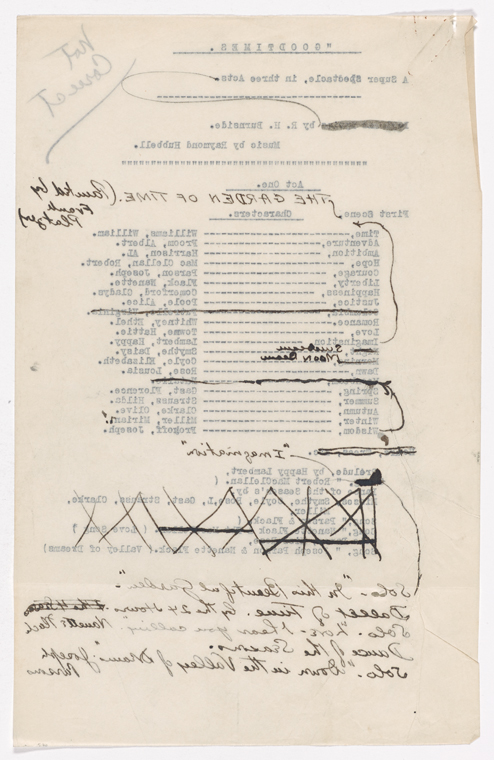 Not
Correct
"GOODTIMES".
A Super Spectacle, in three Acts.
by R. H. Burnside.
Music by Raymond Hubbell.
Act One
THE GARDEN OF TIME. (Painted by
Frank
Platzer)
First Scene.
Characters.
Time, Williams, William.
Adventure, Froom, Albert.
Ambition, Harrison, AL.
Hope, Mac Clellan, Robert.
Courage, Parson, Joseph.
Liberty, Flack, Nanette.
Happiness, Comerford, Gladys.
Justice, Poole, Alice.
Romance. Whitney, Ethel.
Love, Towne, Hattie.
Imagination, Lambert, Happy
Sunbeam Smythe, Daisy
Moon Beam Coyle, Elizabeth.
Dawn, Rose, Louais.
Spring, Gast, Florence.
Summer, Strauss, Hilda.
Autumn Clarke, Olive.
Winter Miller, Miriam.
Wisdom, Prokoff, Joseph.
"Imagination"
Prelude, by Happy Lambert
" Robert McClellan. (
of the Season's by
Smythe, Coyle, Rose, Gast, Strauss, Clarke,
Miller.
Song, " Joseph Parson & Nanette Flack. ( Valley of Dreams)
Solo. "In this Beautiful Garden".
Ballet of Time. By the 24 Hours.
Solo. "Love. I hear you calling" Nanette Flack
Dance of the Seasons.
Solo. "Down in the Valley of Dreams" Joseph
Parsons